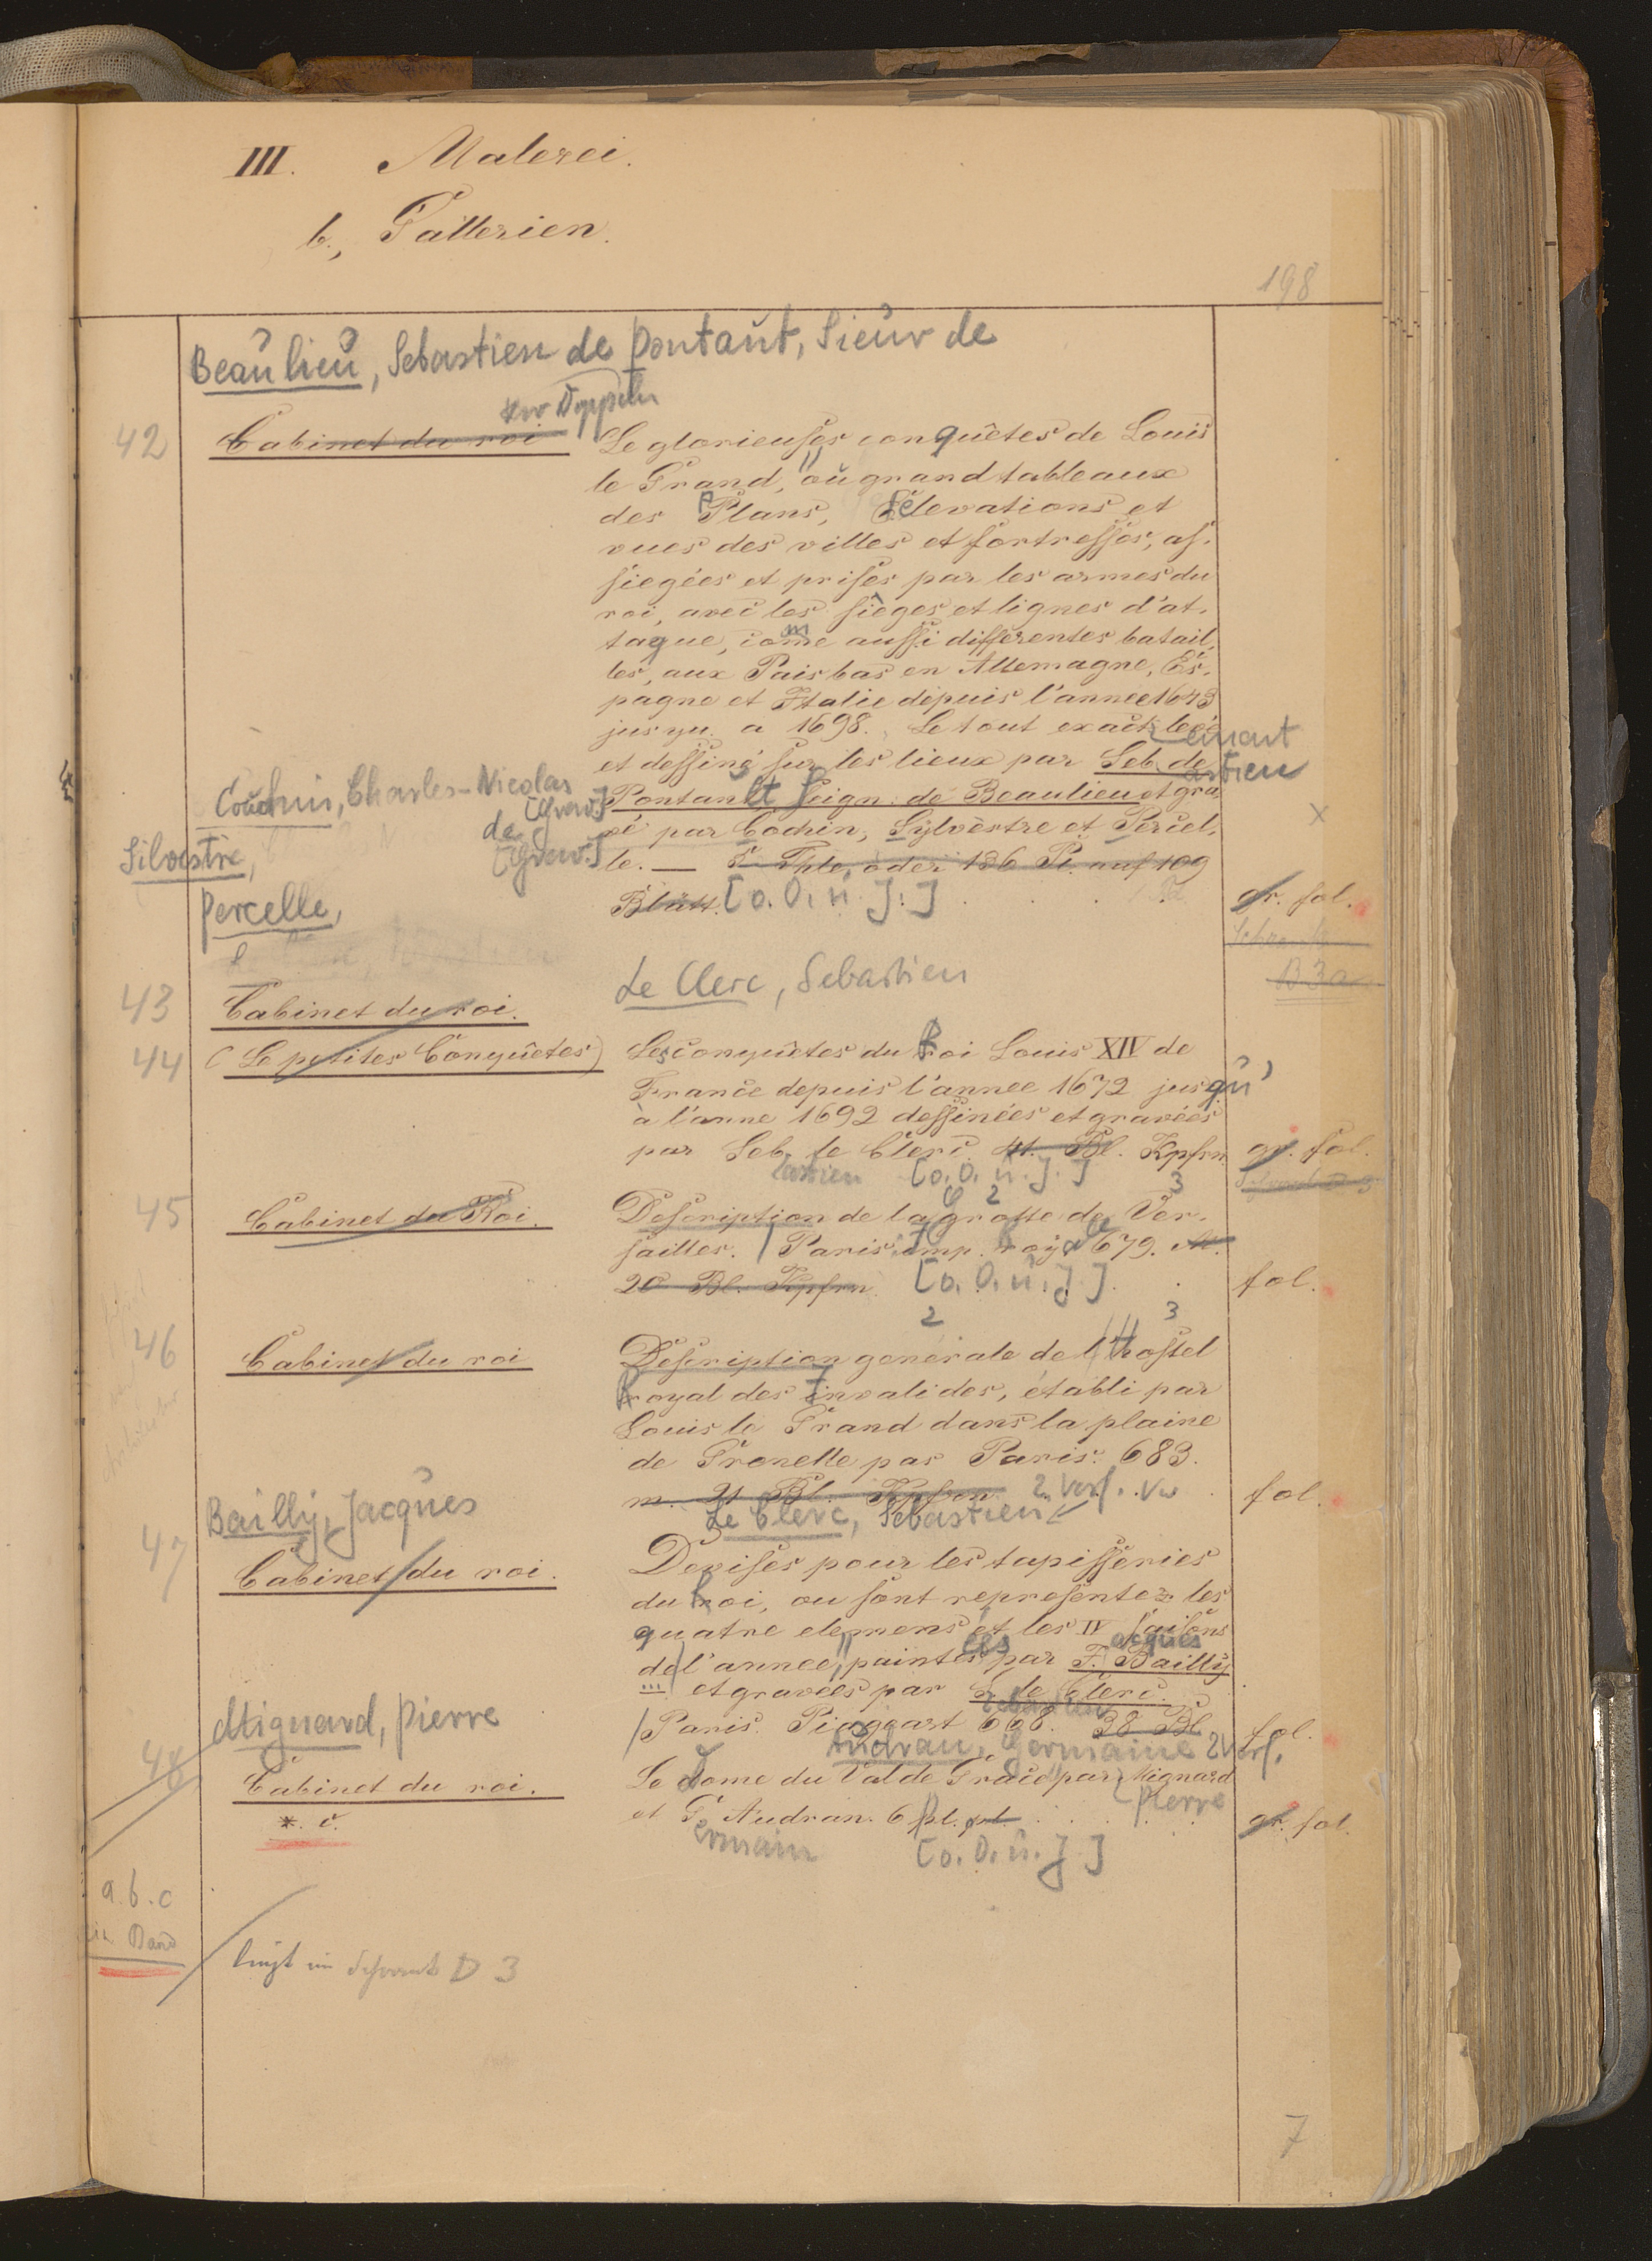 III. Malerei.
b., Gallerien.
198
Beaulieu, Sebastien de Pontaut, Sieur de
42 Cabinet du roi Le glorieuses conquêtes de Louis
le Grand, où grand tableaux
des Plans, Élevations et
vues des villes et fortresses, as-
siegées et prises par les armes du
roi, avec les sièges et lignes d'at-
taque, comme aussi differentes batail-
les, aux Pais bas en Allemagne, Es-
pagne et Italie depuis l'annee 1643
jusqu a 1698. Le tout exacte levé
ement
et dessiné sur les lieux par Seb. de
astien
Cochin, Charles-Nicolas
[Grav.]
Pontault Seign. de Beaulieu et gra-
X
de
vé par Cochin, Sylvèstre et Percel-
Silvestre, [Grav.]
le. — Thle, oder 186 Pl. auf 109
Percelle,
Blätt. [o. O. u. J.] gr. fol.
Le Clerc, Sebastien
B 3a
43 Cabinet du roi.
44 (Le petites Conquêtes) Les conquêtes du Roi Louis XIV de
France depuis l'annee 1672 jusqu'
à l'anne 1692 dessinées et gravées
par Seb. le Clerc. Bl. Kpfrn gr. fol.
[o. O. u. J.]
45 Cabinet du Roi. Description de la grotte de Ver-
sailles. Paris imp. roya 679. M.
20 Bl. Kpfrn [o. O. u. J.] fol.
2 3
46 Cabinet du roi Description generale de l'Hostel
Royal des Invalides, établi par
Louis le Grand dans la plaine
de Grenelle par Paris. 683.
m. 21 Bl. Kpfrn 2 Verf. Vw fol.
Bailly, Jacques
Le Clerc, Sebastien
47 Cabinet du roi. Devises pour les tapisseries
du Roi, ou sont representez les
quatre elemens et les IV saisons
acques
de l'annee, paintes par J. Bailly
et gravées par S. le Clerc.
Sebastien
Mignard, Pierre
Paris. 668. 38 Bl. fol.
Audran, Germaine 2 Verf.
48 Cabinet du roi. Le Dome du Val de Grace par Mignard
Pierre
*. c. et G. Audran. 6 pl. gr. fol.
ermain [o. O. u. J.]
a. b. c
Band
liegt im Schrank D 3
7